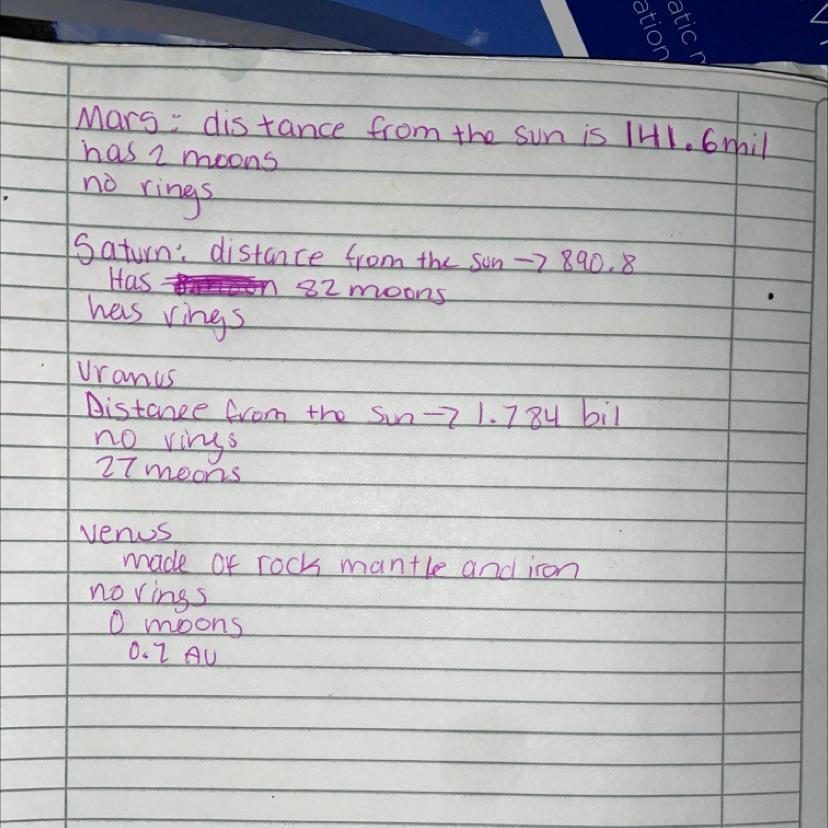 atic
ation
Mars: distance from the sun is 141.6mil
has 2 moons
no rings
Saturn: distance from the sun → 890.8
Has 82 moons
has rings
Uranus
Distance from the sun → 1.784 bil
no rings
27 moons
venus
made of rock mantle and iron
no rings
0 moons
0.7 AU